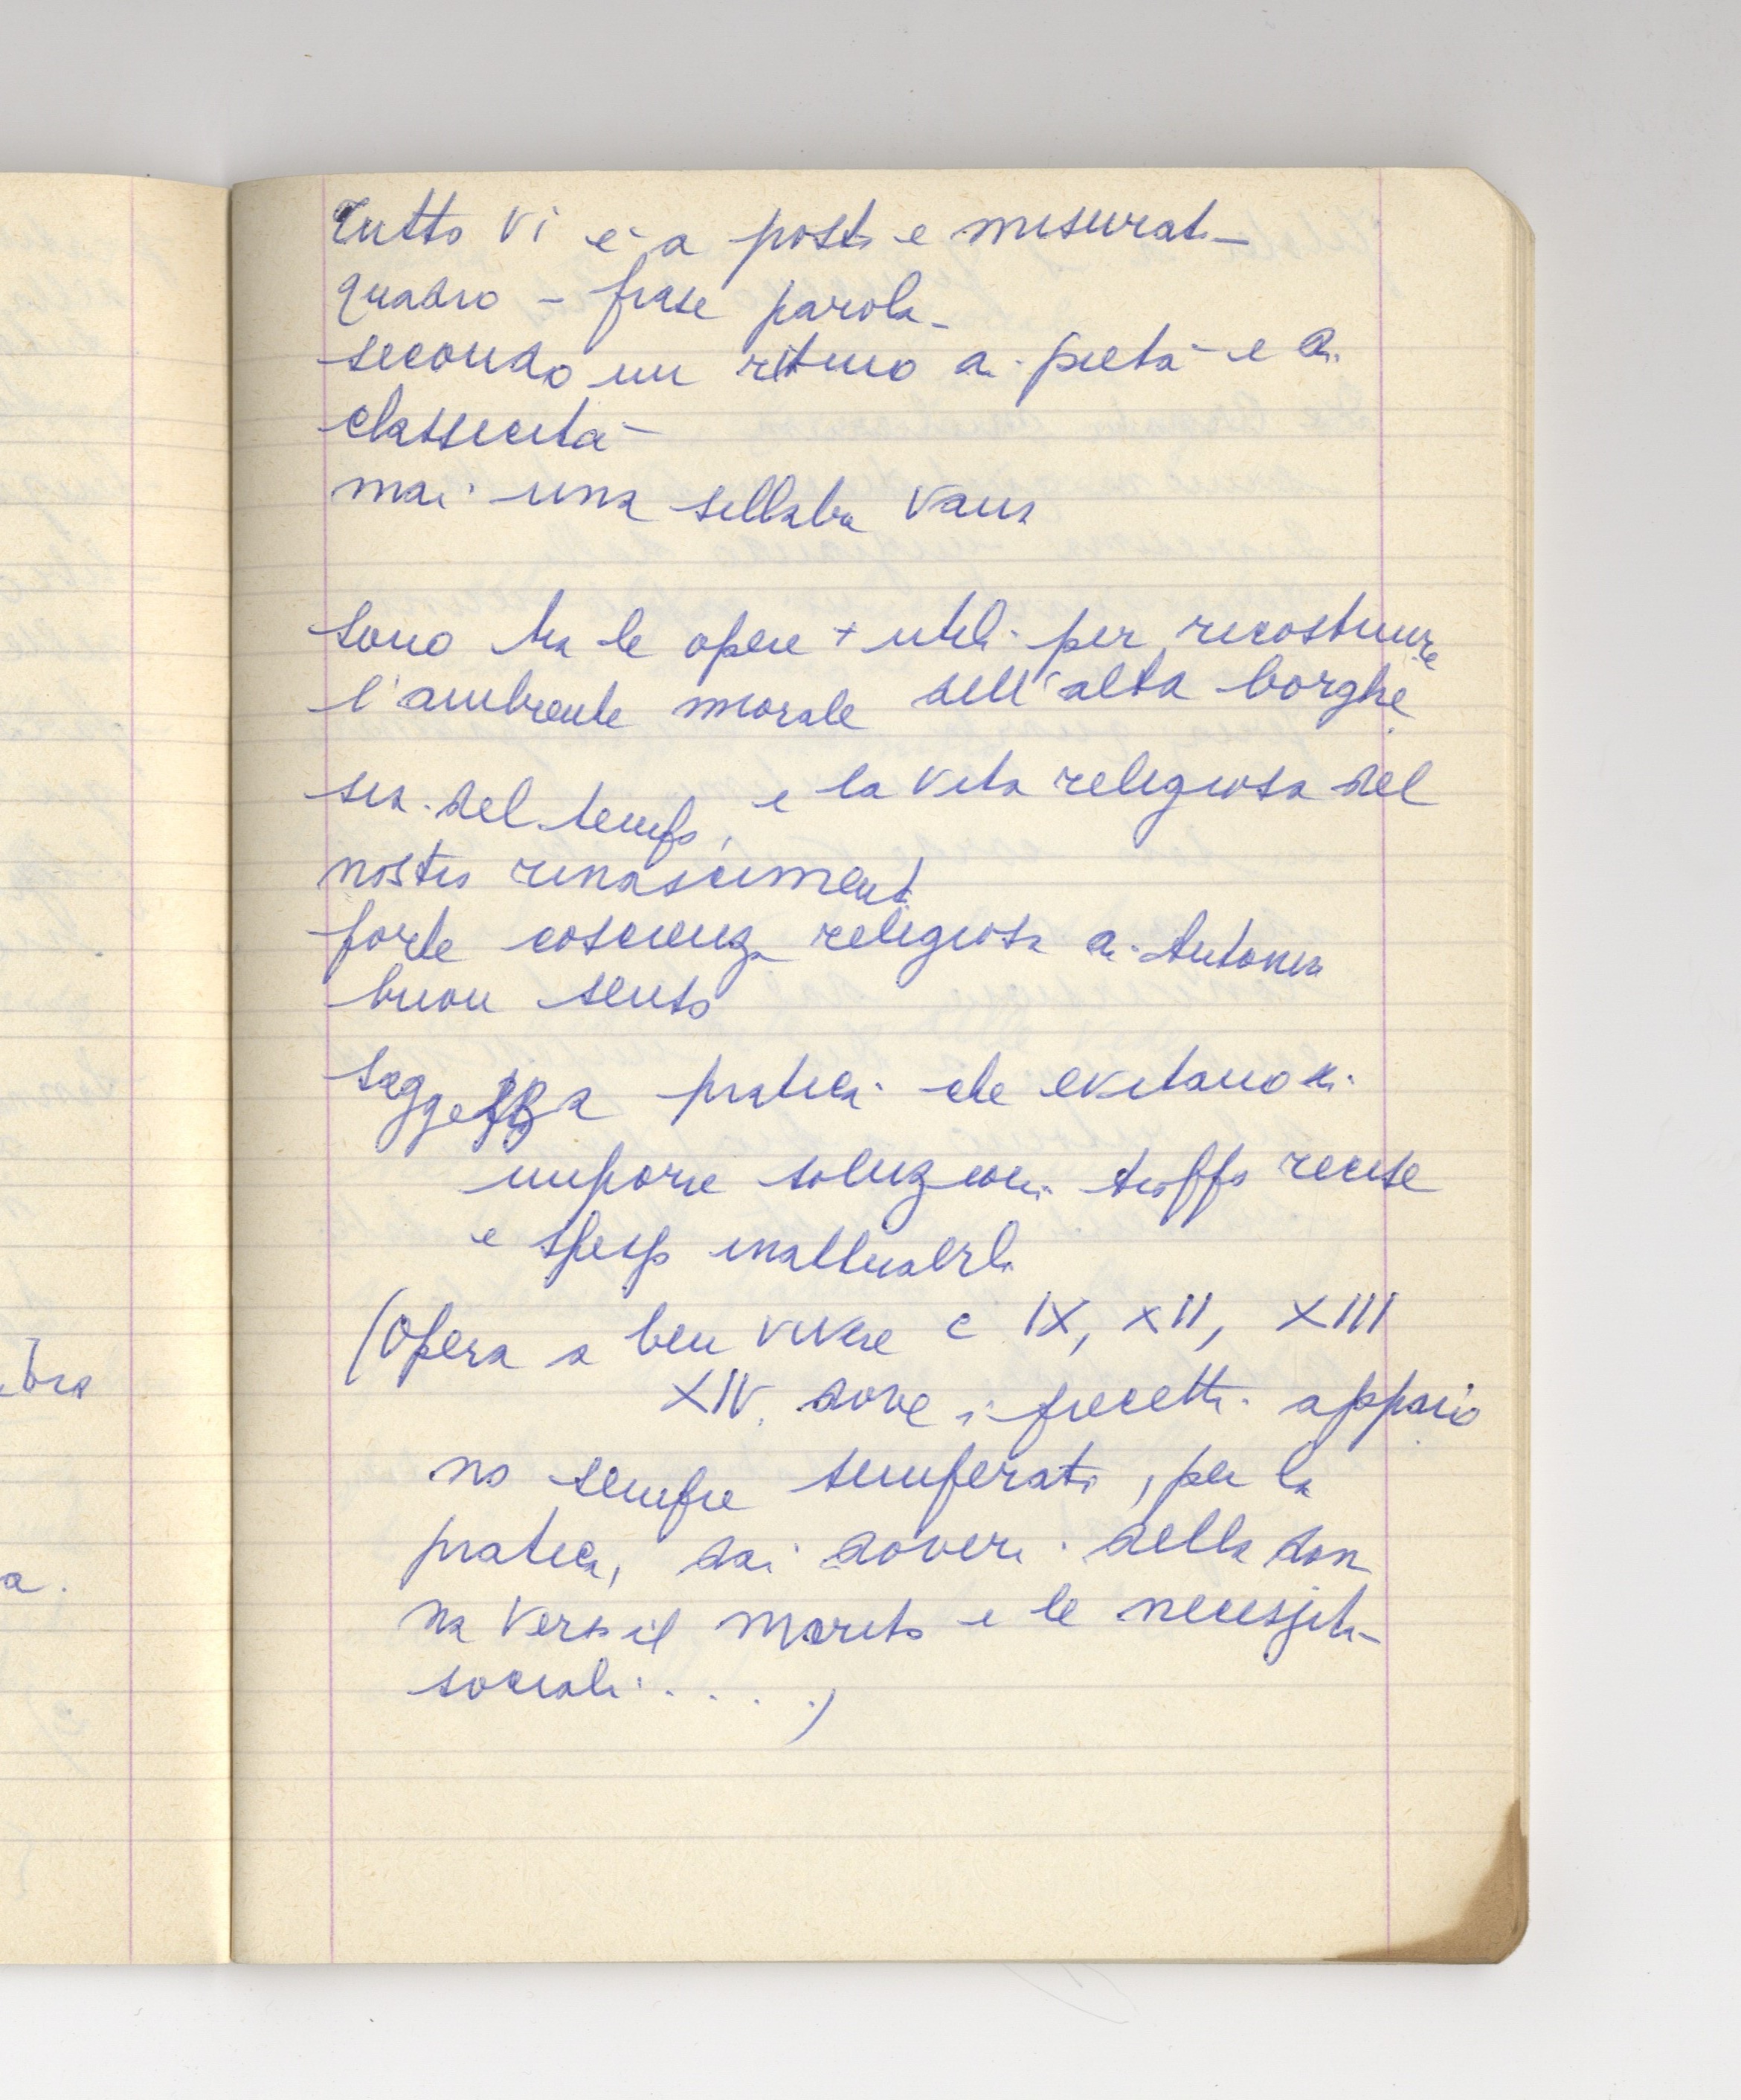 Tutto vi è a posto e misurato -
quadro - frase parola -
secondo un ritmo di pietà e di
classicità
mai una sillaba vana
sono tra le opere + utili per ricostruire
l'ambiente morale dell'alta borghe
sia del tempo, e la vita religiosa del
nostro rinascimento
forte coscienza religiosa di Antonino
buon senso
saggezza pratica che evitano di
imporre soluzioni troppo recise
e spesso inattuabili
(Opera a ben vivere c IX, XII, XIII
XIV. dove i precetti appaio
no sempre temperati, per la
pratica, dai doveri della don
na verso il marito e le necessità
sociali . . . .)
bra
a.